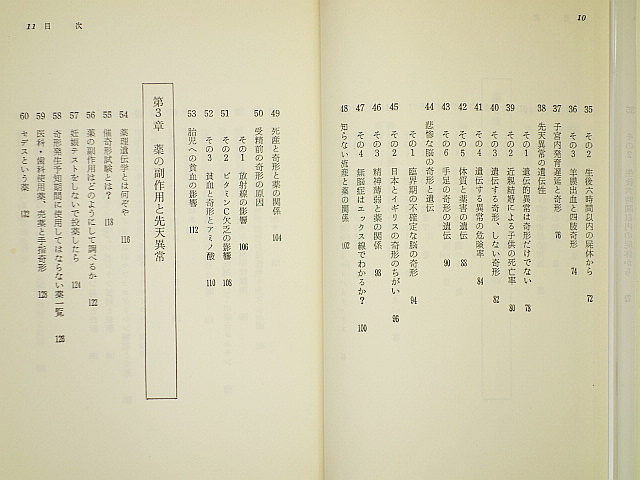 10
35 その2 生後六時間以内の屍体から 72
36 その3 羊膜出血と四肢奇形 74
37 子宮内発育遅延と奇形 76
38 先天異常の遺伝性
39 その1 遺伝的異常は奇形だけでない 78
39 その2 近親結婚による子供の死亡率 80
40 その3 遺伝する奇形、しない奇形 82
41 その4 遺伝する異常の危険率 84
42 その5 体質と薬害の遺伝 88
43 その6 手足の奇形の遺伝 90
44 悲惨な脳の奇形と遺伝
その1 臨界期の不確定な脳の奇形 94
45 その2 日本とイギリスの奇形のちがい 96
46 その3 精神薄弱と薬の関係 98
47 その4 無脳症はエックス線でわかるか? 100
48 知らない流産と薬の関係 102
11 目 次
49 死産と奇形と薬の関係 104
50 受精前の奇形の原因
その1 放射線の影響 106
51 その2 ビタミンC欠乏の影響 108
52 その3 貧血と奇形とアミノ酸 110
53 胎児への貧血の影響 112
第3章 薬の副作用と先天異常
54 薬理遺伝学とは何ぞや 116
55 催奇形試験とは? 118
56 薬の副作用はどのようにして調べるか 122
57 妊娠テストをしないで投薬したら 124
58 奇形発生予知期間に使用してはならない薬一覧 126
59 医科・歯科使用薬、売薬と手指奇形 128
60 セデスという薬 132